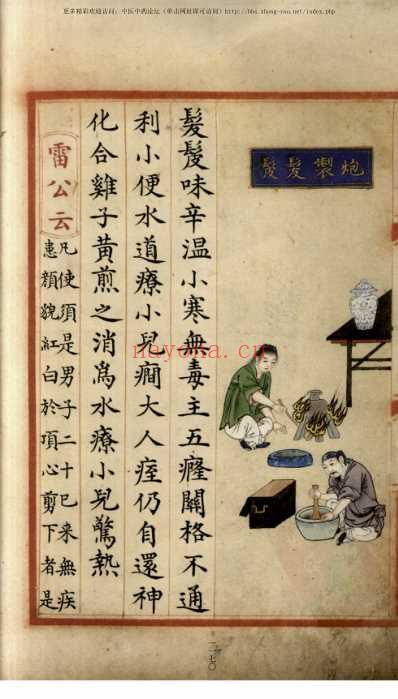 更多精彩欢迎访问:中医中药论坛(单击网址即可访问)http://bbs.zhong-yao.net/index.php
炮製髮髲
髮髲味辛温小寒無毒主五癃關格不通
利小便水道療小兒癇大人痓仍自還神
化合雞子黃煎之消爲水療小兒驚熱
雷公云
凡使須是男子二十已来無疾
患顏貌紅白於項心剪下者是
nayona.cn